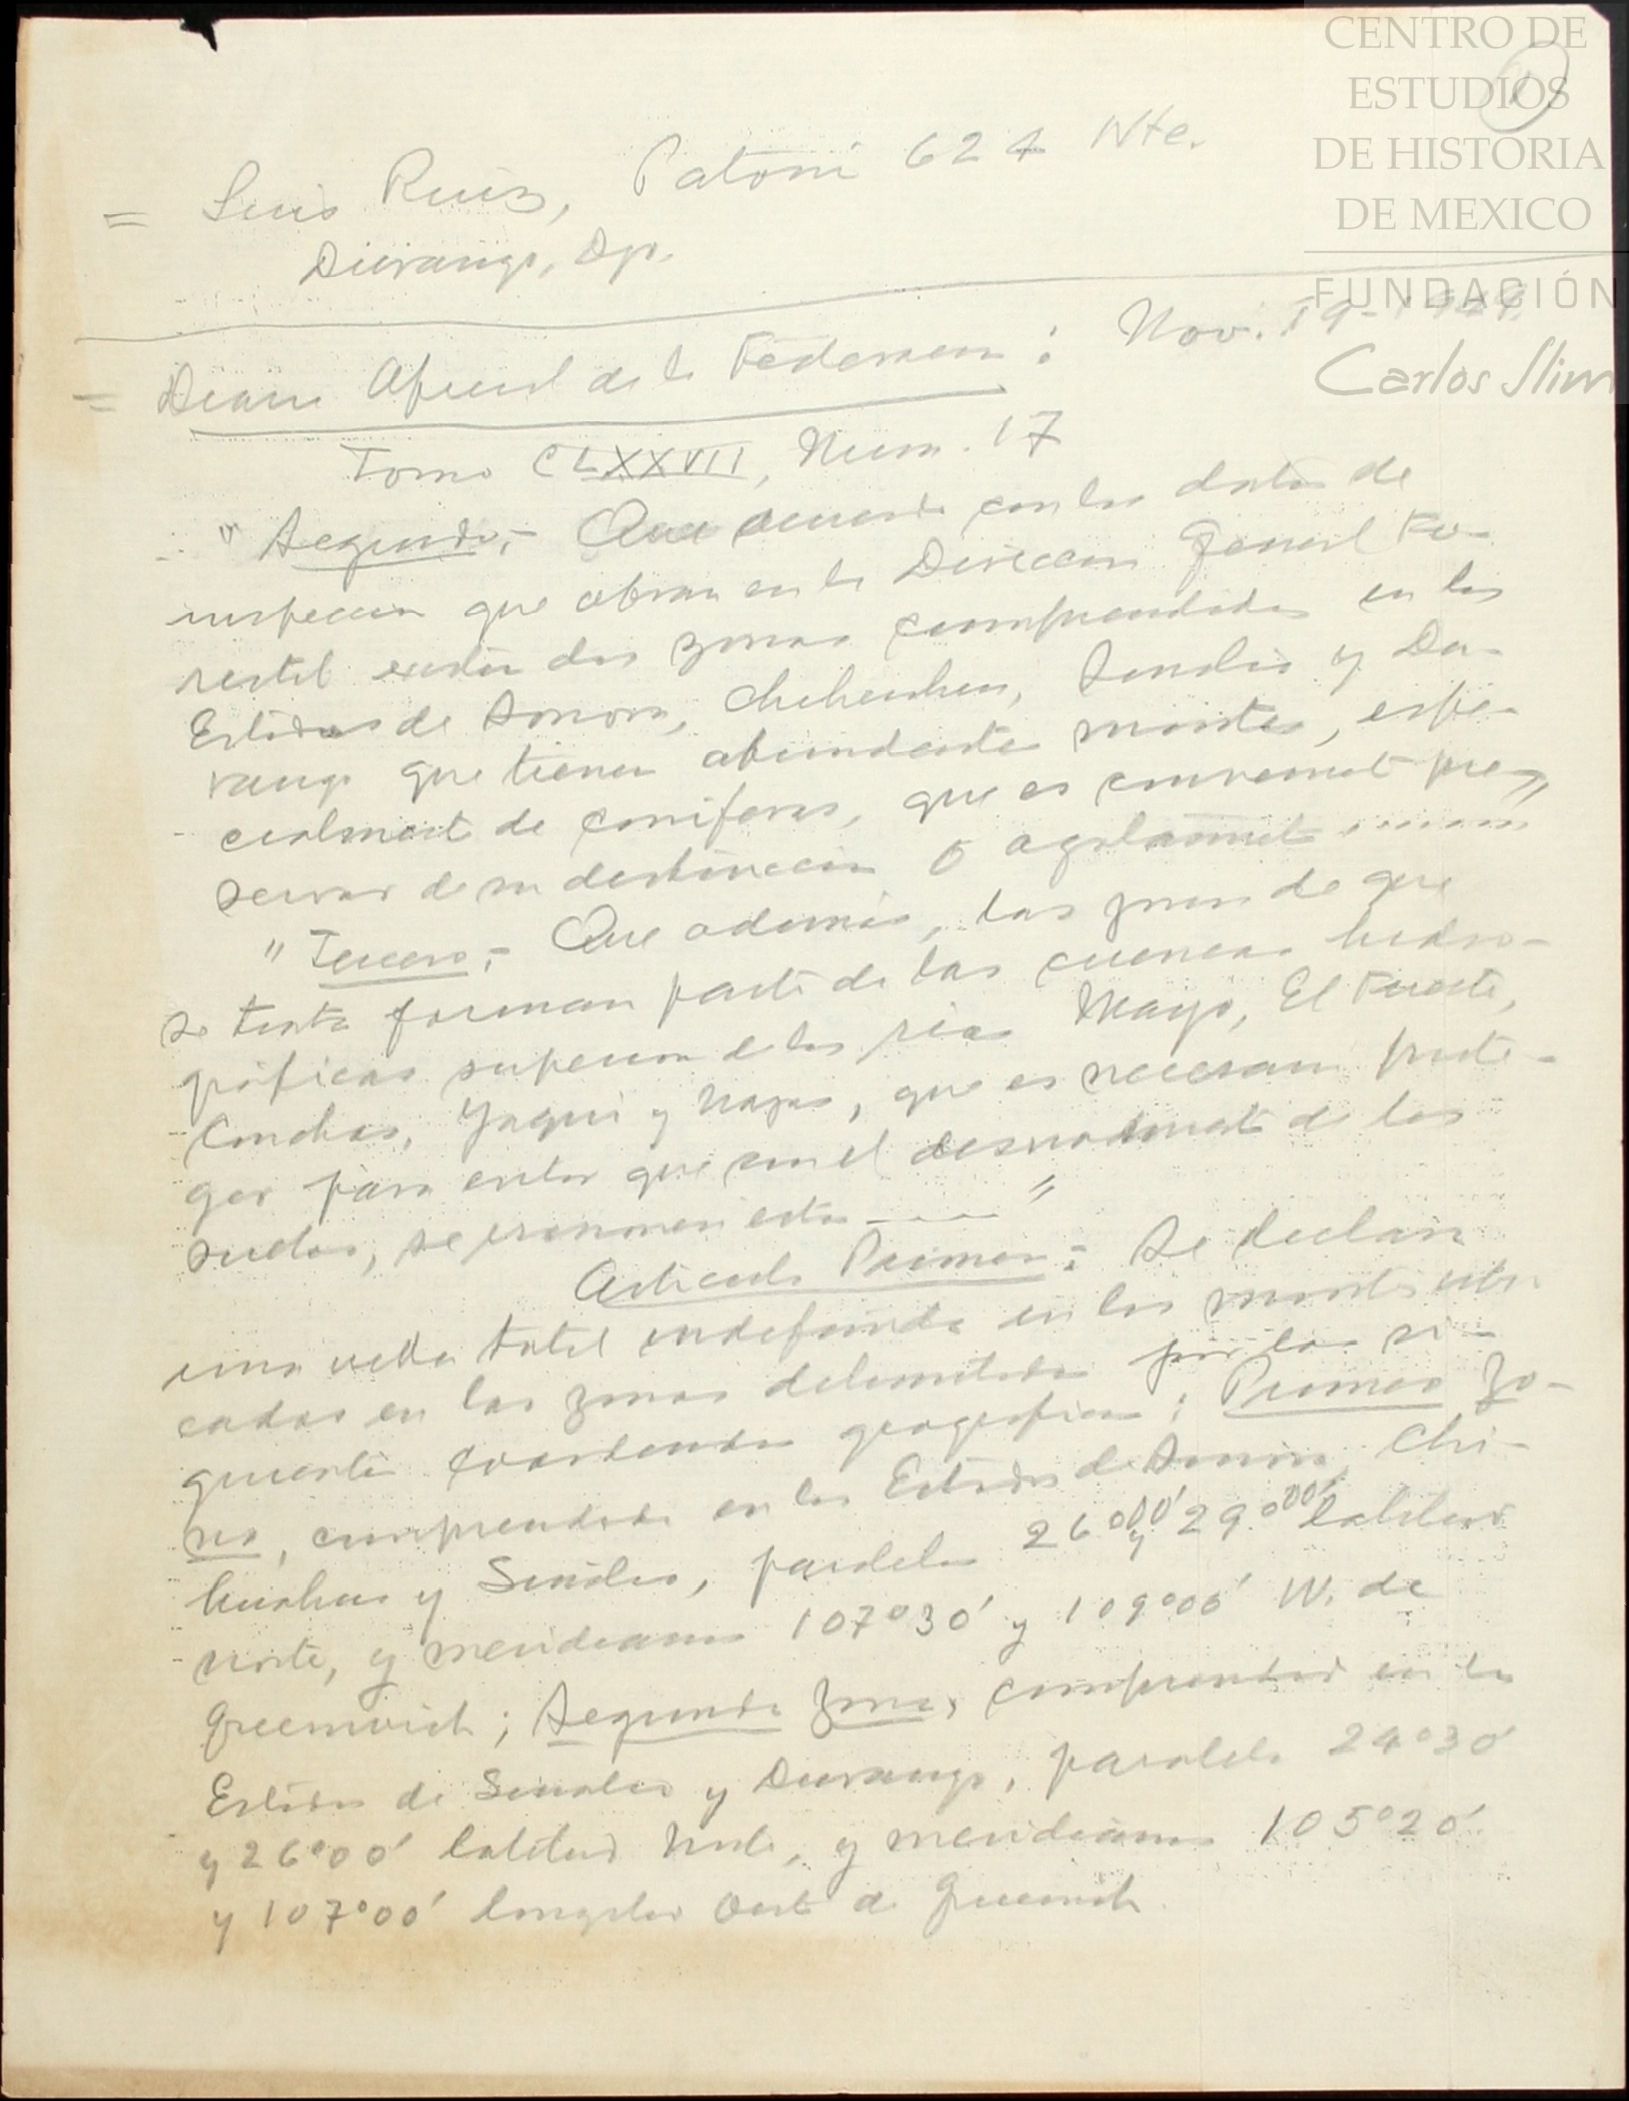 CENTRO DE
ESTUDIOS
DE HISTORIA
DE MEXICO
FUNDACIÓN
Carlos Slim
1
= Luis Ruiz, Patoni 624 Nte.
Durango, Dgo.
= Diario Oficial de la Federacion : Nov. 19-1949
Tomo CLXXVII, Num. 17
" Segundo,- Que acuerdo con los datos de
inspeccion que obran en la Direccion General Fo-
restal existen dos zonas comprendidas en los
Estados de Sonora, Chihuahua, Sinaloa y Du-
rango que tienen abundantes montes, espe-
cialmente de coniferas, que es conveniente pre-
servar de su destruccion o agotamiento ......"
" Tercero,- Que además, las zonas de que
se trata forman parte de las cuencas hidro-
gráficas superiores de los rios Mayo, El Fuerte,
Conchos, Yaqui y Nazas, que es necesario prote-
ger para evitar que con el desnudamiento de los
suelos, se erosionen estos ______ "
Articulo Primero : Se declara
una veda total indefinida en los montes ubi-
cados en las zonas delimitadas por las si-
guientes coordenadas geograficas : Primera Zo-
na, comprendida en los Estados de Sonora, Chi-
huahua y Sinaloa, paralelos 26°00' y 29°00' latitud
norte, y meridianos 107°30' y 109°00' W. de
Greenwich ; Segunda Zona, comprendida en los
Estados de Sinaloa y Durango, paralelos 24°30'
y 26°00' latitud Norte, y meridianos 105°20'
y 107°00' longitud Oeste de Greenwich.